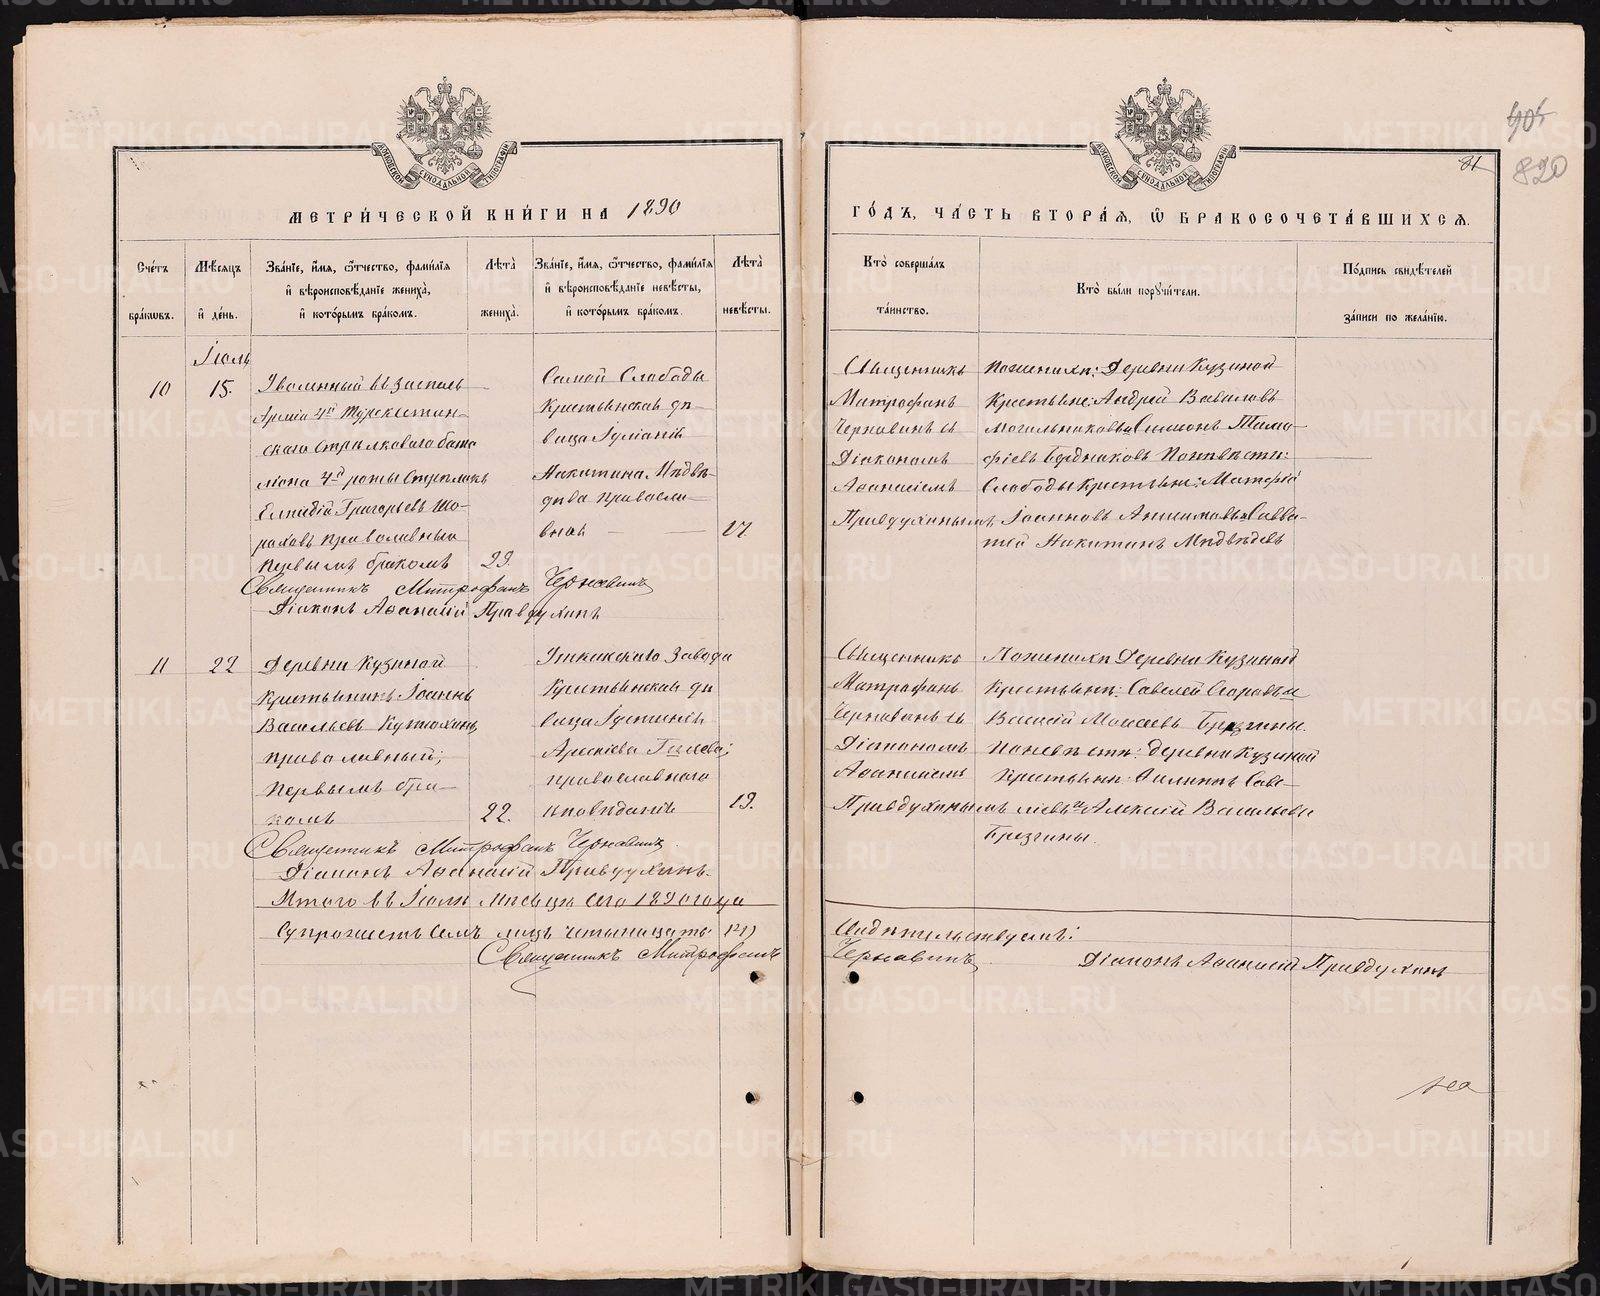 МОСКОВСКОЙ СѴНОДАЛЬНОЙ ТИПОГРАФІИ
МЕТРИ́ЧЕСКОЙ КНИ́ГИ НА 1890
Сче́тъ бра́кωвъ.
Мѣ́сяцъ и҆ де́нь.
Зва́нїе, и҆́мя, ѻ҆́тчество, фами́лїя
и҆ вѣроисповѣ́данїе жениха̀,
и҆ кото́рымъ бра́комъ.
Лѣ́та̀ жениха̀.
Зва́нїе, и҆́мя, ѻ҆́тчество, фами́лїя
и҆ вѣроисповѣ́данїе невѣ́сты,
и҆ кото́рымъ бра́комъ.
Лѣ́та̀ невѣ́сты.
Іюль
10
15.
Уволенный въ запасъ
Арміи 4й Туркестан-
скаго Стрѣлковаго бата
ліона 4й роты Стрѣлокъ
Елпидій Григорьевъ
православный
первымъ бракомъ
23.
Самой Слободы
Крестьянская дѣ-
вица Іуліанія
Никитина Медвѣ-
дева православ-
ная
17.
Священникъ Митрофанъ Чернавинъ
Діаконъ Аѳанасій Правдухинъ
11
22
Деревни Кузиной
Крестьянинъ Іоаннъ
Васильевъ
православный;
первымъ бра-
комъ
22.
Уткинскаго Завода
Крестьянская дѣ
вица Іустинія
православнаго
исповѣданія
19.
Священникъ Митрофанъ Чернавинъ.
Діаконъ Аѳанасій Правдухинъ.
Итого въ Іюлѣ мѣсяцѣ сего 1890 года
Супружествъ семь лицъ четырнадцать
Священникъ Митрофанъ
МОСКОВСКОЙ СѴНОДАЛЬНОЙ ТИПОГРАФІИ
81
820
ГО́ДЪ, ЧА́СТЬ ВТОРА́Я, Ѽ БРАКОСОЧЕТА́ВШИХСЯ.
Кто̀ соверша́лъ та́инство.
Кто̀ бы́ли порꙋчи́тели.
По́дпись свидѣ́телей
за́писи по жела́нїю.
Священникъ
Митрофанъ
Чернавинъ съ
Діакономъ
Аѳанасіемъ
Правдухинымъ
По женихѣ: Деревни Кузиной
Крестьяне: Андрей Вавиловъ
Могильниковъ и Симеонъ Тимо-
фіевъ Бердниковъ По невѣстѣ:
Слободы Крестьяне: Матфій
Іоанновъ Анисимовъ и Савва-
тій Никитинъ Медвѣдевъ
Священникъ
Митрофанъ
Чернавинъ съ
Діакономъ
Аѳанасіемъ
Правдухинымъ
По женихѣ Деревни Кузиной
Крестьяне: Савелій и
Василій Моисеевъ Брезгины.
По невѣстѣ: деревни Кузиной
Крестьяне: Филиппъ Саве-
ліевъ и Алексій Васильевъ
Брезгины.
Свидѣтельствуемъ:
Чернавинъ
Діаконъ Аѳанасій Правдухинъ
METRIKI.GASO-URAL.RU